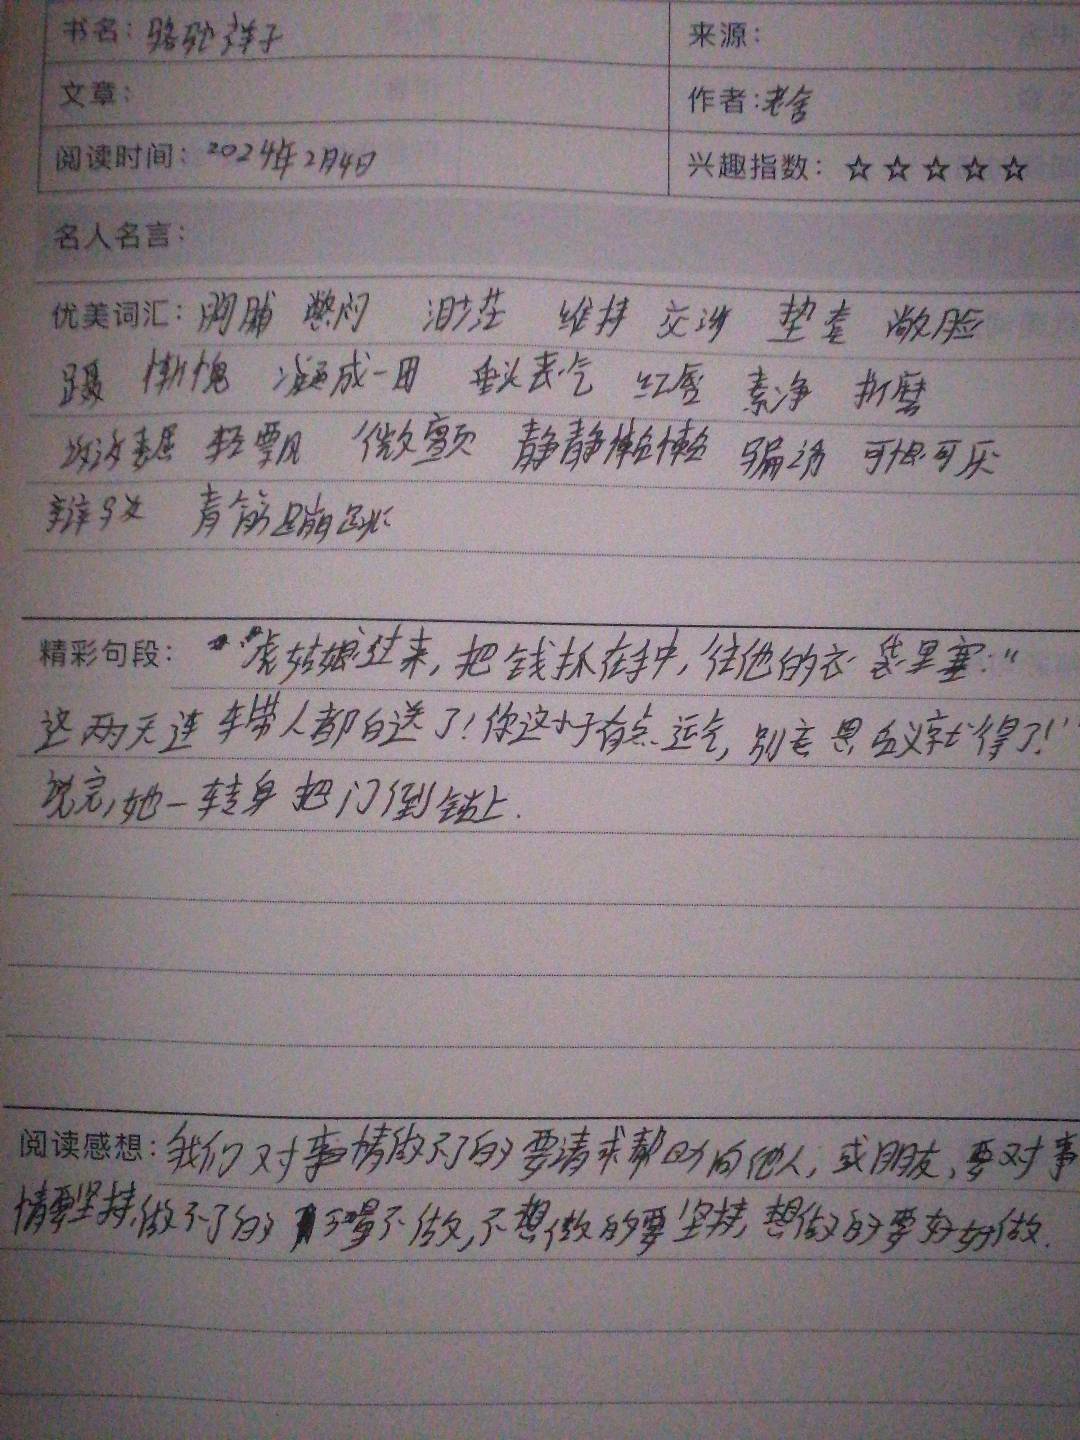 书名：骆驼祥子 来源：
文章： 作者：老舍
阅读时间：2024年2月4日 兴趣指数：☆☆☆☆☆
名人名言：
优美词汇：胸脯 憋闷 渺茫 维持 交涉 垫套 敞脸
蹑 惭愧 凝成一团 垂头丧气 红唇 素净 折磨
轻飘 微颤 静静懒懒 骗诱 可怜可乐
青筋蹦起
精彩句段：“虎姑娘过来，把钱抓在手中，往他的衣袋里塞：“
这两天连车带人都白送了！你这小子有点运气，别忘恩负义就得了！”
说完，她一转身把门倒锁上．
阅读感想：我们对事情做不了的要请求帮助向他人，或朋友，要对事
情要坚持，做不了的不做，不想做的要坚持，想做的要好好做．